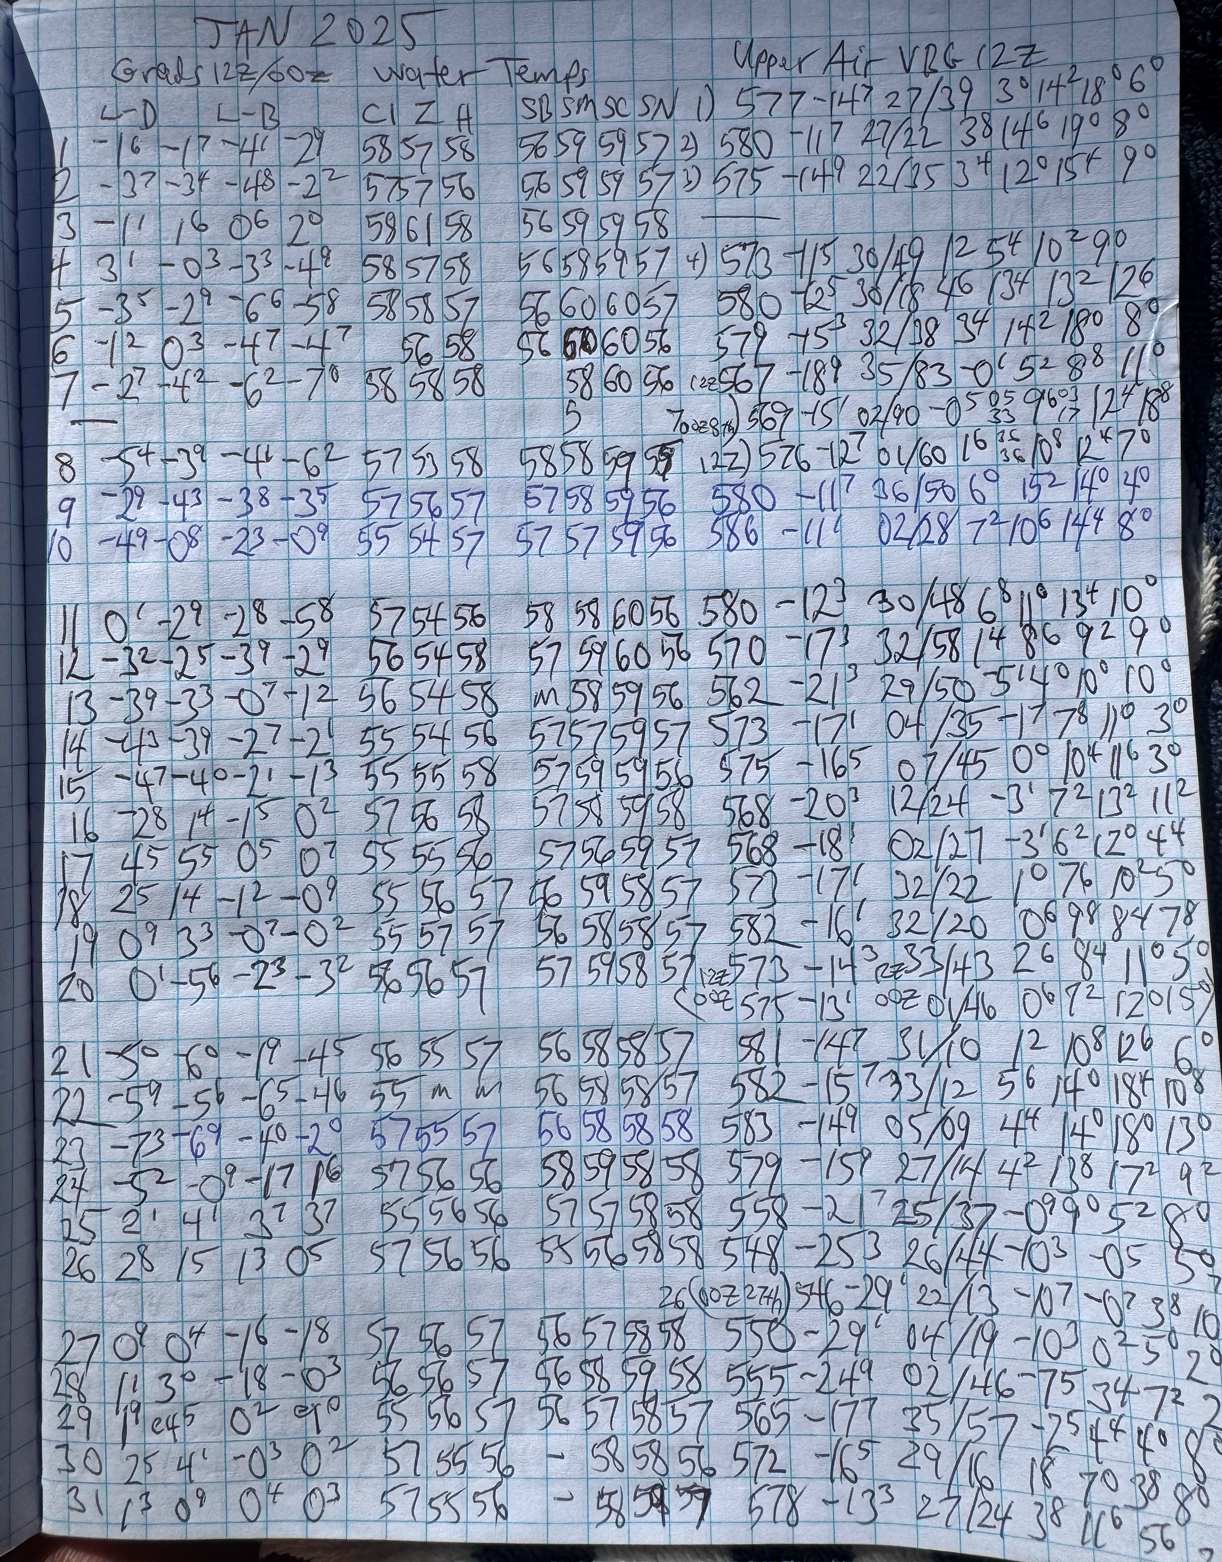 JAN 2025
Grads 12Z/00Z Water Temps Upper Air VBG 12Z
L-D L-B CI Z A SB SM SC SN 1) 577 -14⁷ 27/39 3⁰ 14² 18⁰ 6⁰
1 -1⁶ -1⁷ -4¹ -2⁹ 58 57 58 56 59 59 57 2) 580 -11⁷ 27/22 3⁸ 14⁶ 19⁰ 8⁰
2 -3⁷ -3⁴ -4⁸ -2² 57 57 56 56 59 59 57 3) 575 -14⁹ 22/35 3⁴ 12⁰ 15⁴ 9⁰
3 -1¹ 1⁶ 0⁶ 2⁰ 58 61 58 56 59 59 58 —
4 3¹ -0³ -3³ -4⁹ 58 57 58 56 58 59 57 4) 573 -11⁵ 30/49 1² 5⁴ 10² 9⁰
5 -3⁵ -2⁹ -6⁶ -5⁸ 58 58 57 56 60 60 57 580 -12⁵ 30/18 4⁶ 13⁴ 13² 12⁶
6 -1² 0³ -4⁷ -4⁷ 56 58 56 60 60 56 579 -15³ 32/38 3⁴ 14² 18⁰ 8⁰
7 -2⁷ -4² -6² -7⁰ 58 58 58 58 60 56 (12Z 567 -18⁹ 35/83 -0¹ 5² 8⁸ 11⁰
— 5 7(00Z 8th) 569 -15¹ 02/90 -0⁵ 05/33 9⁶ 03/17 12⁴ 18⁸
8 -5⁴ -3⁹ -4¹ -6² 57 53 58 58 58 59 55 12Z) 576 -12⁷ 01/60 1⁶ 35/36 10⁸ 12⁴ 7⁰
9 -2⁹ -4³ -3⁸ -3⁵ 57 56 57 57 58 59 56 580 -11⁷ 36/50 6⁰ 15² 14⁰ 4⁰
10 -4⁹ -0⁸ -2³ -0⁹ 55 54 57 57 57 59 56 586 -11¹ 02/28 7² 10⁶ 14⁴ 8⁰
11 0¹ -2⁹ -2⁸ -5⁸ 57 54 56 58 58 60 56 580 -12³ 30/48 6⁸ 11⁰ 13⁴ 10⁰
12 -3² -2⁵ -3⁹ -2⁹ 56 54 58 57 59 60 56 570 -17³ 32/58 1⁴ 8⁶ 9² 9⁰
13 -3⁹ -3³ -0⁷ -1² 56 54 58 m 58 59 56 562 -21³ 29/50 -5¹ 4⁰ 10⁰ 10⁰
14 -4³ -3⁹ -2⁷ -2¹ 55 54 56 57 57 59 57 573 -17¹ 04/35 -1⁷ 7⁸ 11⁰ 3⁰
15 -4⁷ -4⁰ -2¹ -1³ 55 55 58 57 59 59 56 575 -16⁵ 07/45 0⁰ 10⁴ 11⁶ 3⁰
16 -2⁸ 1⁴ -1⁵ 0² 57 56 58 57 58 59 58 568 -20³ 12/24 -3¹ 7² 13² 11²
17 4⁵ 5⁵ 0⁵ 0⁷ 55 55 56 57 56 59 57 568 -18¹ 02/27 -3¹ 6² 12⁰ 4⁴
18 2⁵ 1⁴ -1² -0⁹ 55 56 57 56 59 58 57 573 -17¹ 32/22 1⁰ 7⁶ 10² 5⁰
19 0⁹ 3³ -0⁷ -0² 55 57 57 56 58 58 57 582 -16¹ 32/20 0⁶ 9⁸ 8⁴ 7⁸
20 0¹ -5⁶ -2³ -3² 56 56 57 57 59 58 57 (12Z 573 -14³ 12Z 33/43 2⁶ 8⁴ 11⁰ 5⁰
(00Z 575 -13¹ 00Z 01/46 0⁶ 7² 12⁰ 15⁰)
21 -5⁰ -6⁰ -1⁹ -4⁵ 56 55 57 56 58 58 57 581 -14⁷ 31/10 1² 10⁸ 12⁶ 6⁰
22 -5⁹ -5⁶ -6⁵ -4⁶ 55 m m 56 58 58 57 582 -15⁷ 33/12 5⁶ 14⁰ 18⁴ 10⁸
23 -7³ -6⁹ -4⁰ -2⁰ 57 55 57 56 58 58 58 583 -14⁹ 05/09 4⁴ 14⁰ 18⁰ 13⁰
24 -5² -0⁹ -1⁷ 1⁶ 57 56 56 58 59 58 58 579 -15⁹ 27/14 4² 13⁸ 17² 9²
25 2¹ 4¹ 3⁷ 3⁷ 55 56 56 57 57 58 58 558 -21⁷ 25/37 -0⁹ 9⁰ 5² 8⁰
26 2⁸ 1⁵ 1³ 0⁵ 57 56 56 55 56 58 58 548 -25³ 26/44 -10³ -0⁵ 5⁰
26(00Z 27th) 546 -29¹ 22/13 -10⁷ -0⁷ 3⁸ 10
27 0⁹ 0⁴ -1⁶ -1⁸ 57 56 57 56 57 58 58 550 -29¹ 04/19 -10³ 0² 5⁰ 2⁰
28 1¹ 3⁰ -1⁸ -0³ 56 56 57 56 58 59 58 555 -24⁹ 02/46 -7⁵ 3⁴ 7² 2
29 1⁹ e4⁵ 0² e1⁰ 55 56 57 56 57 58 57 565 -17⁷ 35/57 -2⁵ 4⁴ 4⁰ 8⁰
30 2⁵ 4¹ -0³ 0² 57 55 56 - 58 58 56 572 -16⁵ 29/16 1⁸ 7⁰ 3⁸ 8⁰
31 1³ 0⁹ 0⁴ 0³ 57 55 56 - 58 59 57 578 -13³ 27/24 3⁸ 11⁶ 5⁶